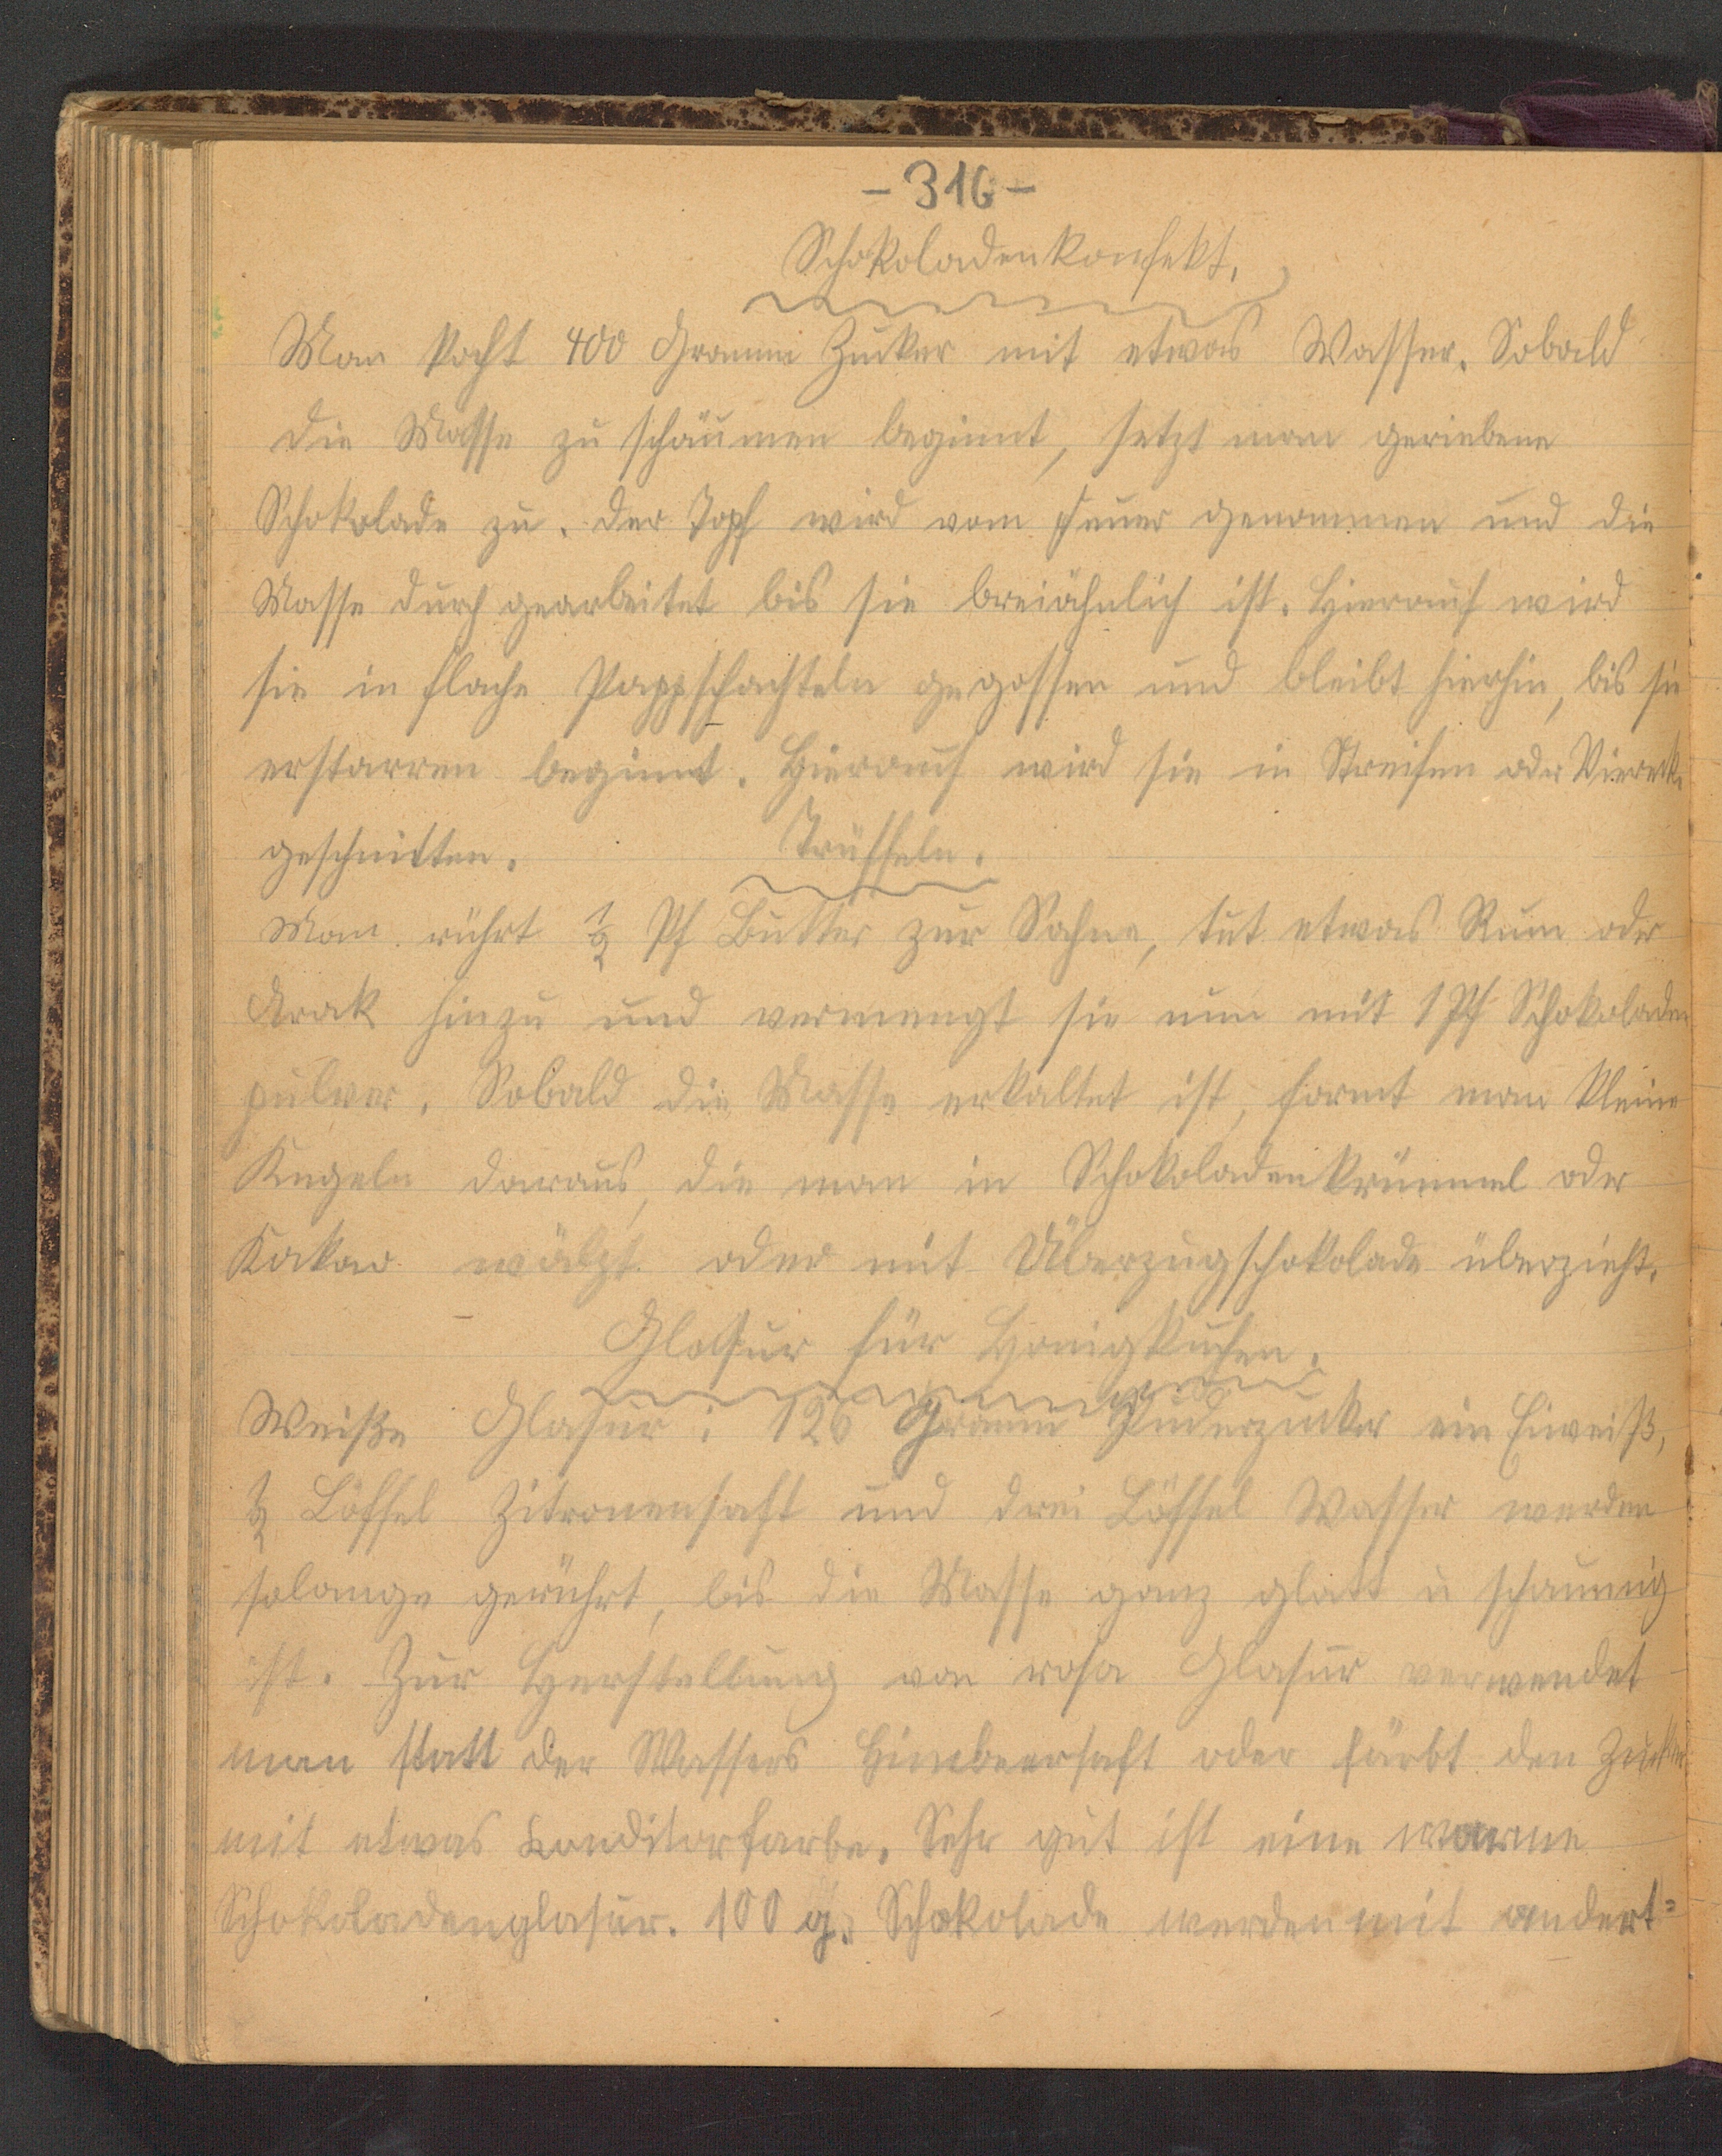 - 316 -
Schokoladenkonfekt.
Man kocht 400 Gramm Zucker mit etwas Wasser. Sobald
die Masse zu schäumen beginnt, setzt man geriebene
Schokolade zu. Der Topf wird vom Feuer genommen und die
Masse durchgearbeitet bis sie breiähnlich ist. Hierauf wird
sie in flache Pappschachteln gegossen und bleibt hierhin, bis sie
erstarren beginnt. Hierauf wird sie in Streifen oder Vierecke
geschnitten.
Trüffeln.
Man rührt ½ Pf Butter zur Sahne, tut etwas Rum oder
Arak hinzu und vermengt sie nun mit 1 Pf Schokoladen
pulver. Sobald die Masse erkaltet ist, formt man kleine
Kugeln daraus, die man in Schokoladenkrümmel oder
Kakao wälzt oder mit Überzugschokolade überzieht.
Glasur für Honigkuchen.
Weiße Glasur: 126 Gramm Puderzucker ein Eiweiß,
½ Löffel Zitronensaft und drei Löffel Wasser werden
solange gerührt, bis die Masse ganz glatt u schaumig
ist. Zur Herstellung von rosa Glasur verwendet
man statt der Wassers Himbeersaft oder färbt den Zucker
mit etwas Konditorfarbe. Sehr gut ist eine warme
Schokoladenglasur. 100 g. Schokolade werden mit andert=